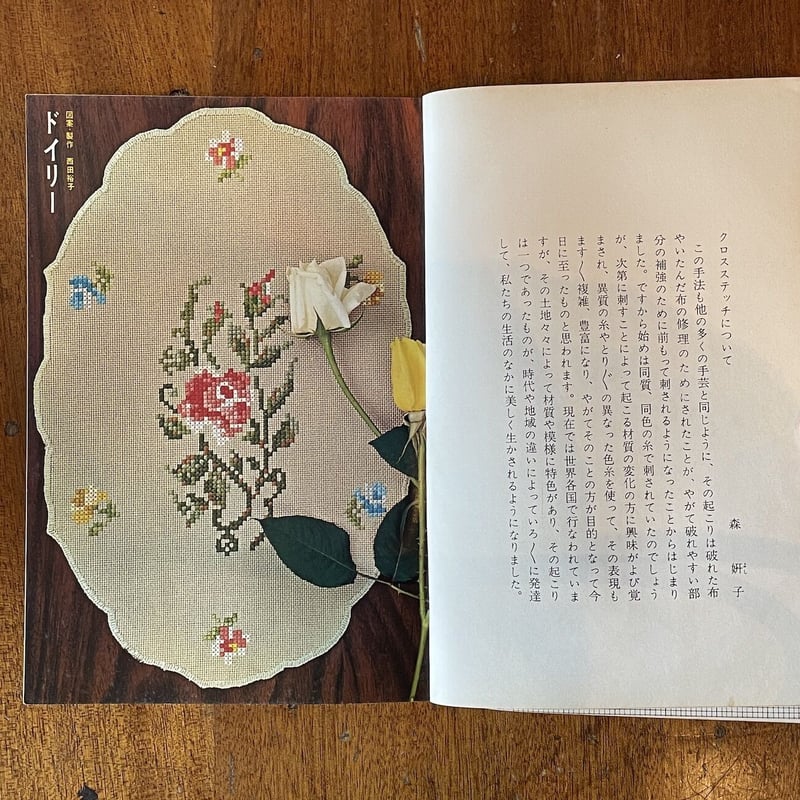 クロスステッチについて
森 姸子
この手法も他の多くの手芸と同じように、その起こりは破れた布
やいたんだ布の修理のためにされたことが、やがて破れやすい部
分の補強のために前もって刺されるようになったことからはじまり
ました。ですから始めは同質、同色の糸で刺されていたのでしょう
が、次第に刺すことによって起こる材質の変化の方に興味がよび覚
まされ、異質の糸やとり〴〵の異なった色糸を使って、その表現も
ます〳〵複雑、豊富になり、やがてそのことの方が目的となって今
日に至ったものと思われます。現在では世界各国で行なわれていま
すが、その土地々々によって材質や模様に特色があり、その起こり
は一つであったものが、時代や地域の違いによっていろ〳〵に発達
して、私たちの生活のなかに美しく生かされるようになりました。
図案・製作 西田裕子
ドイリー